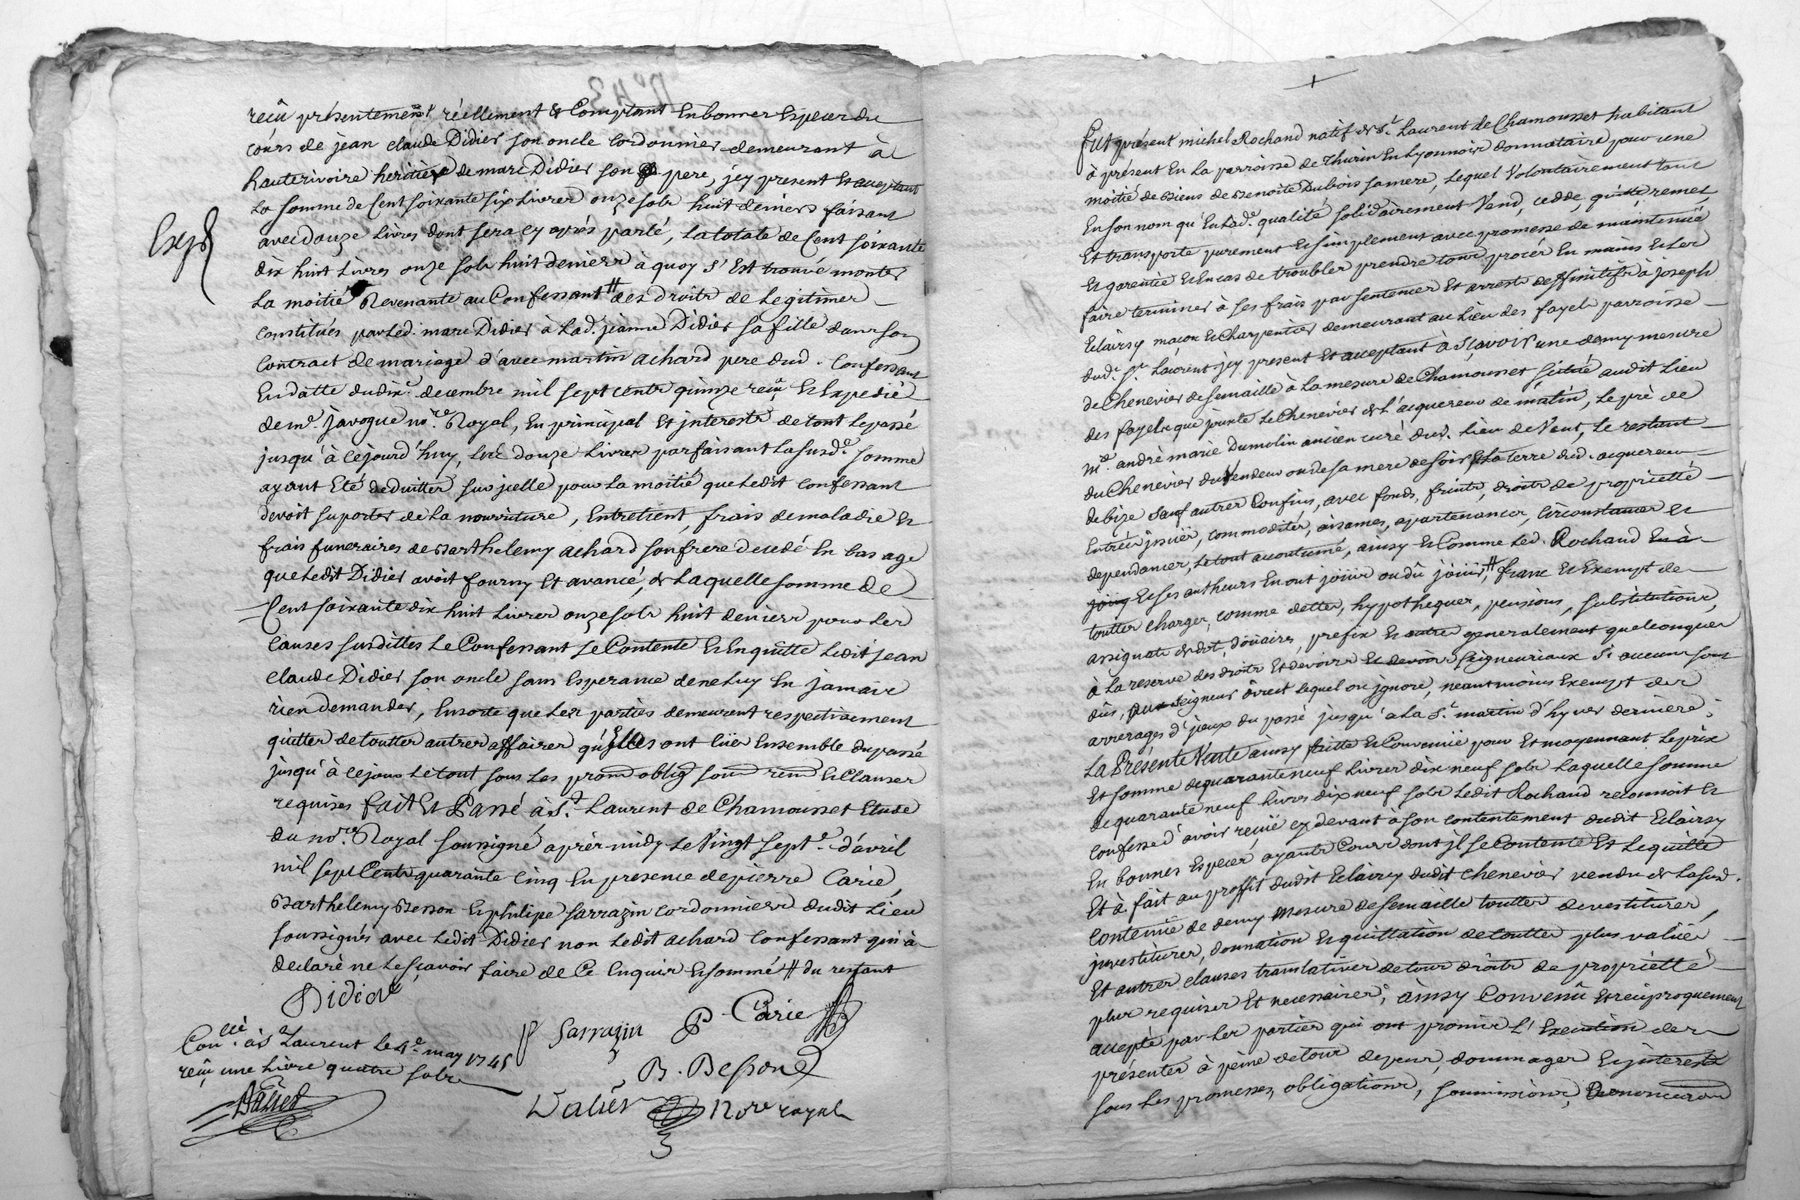 reçû présentement réellement & Comptant En bonnes Espèces du
cours de jean claude Didier son oncle cordonnier demeurant à
hauterivoire heritier de marc Didier son pere, jcy present Et acceptant
La somme de Cent soixante six Livres onze sols huit deniers faisant
avec douze Livres dont sera cy après parlé, La totale de Cent soixante
dix huit Livres onze sols huit deniers à quoy s'Est trouvé monter
La moitié Revenante au Confessant # des Droits de Legitimes
Constitués par Led. marc Didier à Lad. jeanne Didier sa fille dans son
Contract de mariage d'avec martin achard pere dud. Confessant
En datte du dix decembre mil sept cents quinze reçu Et Expedié
de me. javogue nore. Royal, En principal Et jnterests de tout Le passé
jusqu'à Cejourd'huy, Les douze Livres parfaisant La susde. somme
ayant Eté deduittes sur jcelle pour La moitié que Ledit Confessant
devoit suporter de La nourriture, Entretient, frais de maladie Et
frais funeraires de Barthelemy achard son frere decedé En bas age
que Ledit Didier avoit fourny Et avancé, de Laquelle somme de
Cent soixante dix huit Livres onze sols huit deniers pour Les
Causes susdittes Le Confessant Se Contente Et En quitte Ledit jean
claude Didier son oncle sans Esperance de ne Luy En jamais
rien demander, Ensorte que Les parties demeurent respectivement
quittes de touttes autres affaires qu'Elles ont Eües Ensemble du passé
jusqu'à ce jour Le tout sous Les prom oblig soum renon Et Clauses
requises fait Et Passé à St. Laurent de Chamousset Etude
du nore. Royal soussigné après midy Le Vingt septe. d'avril
mil sept Cents quarante Cinq En presence de pierre Carie,
Barthelemy Besson Et philipe Sarrazin cordonniers dudit Lieu
soussignés avec Ledit Didier non Ledit achard Confessant qui à
declaré ne Le sçavoir faire de Ce Enquis Et sommé # du restant
Expd
Didier
P Sarrazin
P Carie
B. Besson
Conllé. à St Laurent Le 4e. may 1745
reçu une Livre quatre sols
Nore royal
+
Fut présent michel Rochand natif de St. Laurent de Chamousset habitant
à présent En La parroisse de Thurin En Lyonnois donnataire pour une
moitié des biens de Benoite Dubois sa mere, Lequel Volontairement tant
En son nom qu'En Lade. qualité solidairement Vend, cedde, quitte remet,
Et transporte purement Et simplement avec promesse de maintenüe
Et garentie Et En cas de troubles prendre tous procès En mains Et Les
faire terminer à ses frais par sentences Et arrests deffinitifs à joseph
Eclairsy maçon Et Charpentier demeurant au Lieu des fayels parroisse
dud. St. Laurent jcy present Et acceptant à Sçavoir une demy mesure
de Chenevier de semaille à La mesure de Chamousset située audit Lieu
des fayels que jointe Le Chenevier de L'acquereur de matin, Le pré de
me. andré marie Dumolin ancien curé dud. Lieu de Vent, Le restant
du Chenevier du Vendeur ou de sa mere de soir Et La terre dud. acquereur
de bize sauf autres Confins, avec fonds, fruits, droits de proprietté
Entrées jssües, commodités, aisances, apartenances, Circonstances Et
dependances, Le tout accoutumé, ainsy Et Comme Led. Rochand En à
joüy Et ses autheurs En ont joüir ou dû joüir, # franc Et Exempt de
touttes charges, comme dettes, hypotheques, pensions, substitutions,
assignats de dot, doüaires, prefix Et autre generalement quelconques
à La reserve des droits Et devoirs Et devoirs seigneuriaux Si aucuns sont
dûs, aux seigneur direct Lequel on jgnore, neantmoins Exempt des
arrerages d'jceux du passé jusqu'a La St. martin d'hyver derniere;
La Présente Vente ainsy faitte Et Convenüe pour Et moyennant Le prix
Et somme de quarante neuf Livres dix neuf sols Laquelle somme
de quarante neuf Livres dix neuf sols Ledit Rochand reconnoit Et
confesse d'avoir reçüe cy devant à son contentement dudit Eclairsy
En bonnes Especes ayants Cours dont jl se Contente Et Le quitte
Et à fait au proffit dudit Eclairsy dudit chenevier vendu de La susd.
Contenüe de demy mesure de semaille touttes devestitures,
jnvestitures, donnation Et quittation de toutte plus valüe
Et autres clauses translatives de tous droits de proprietté
plus requises Et necessaires; ainsy Convenû Et reciproquement
accepté par Les parties qui ont promis L'Execution des
présentes à peine de tous depens, dommages Et jnterests
sous Les promesses, obligations, soumissions, Renonciations